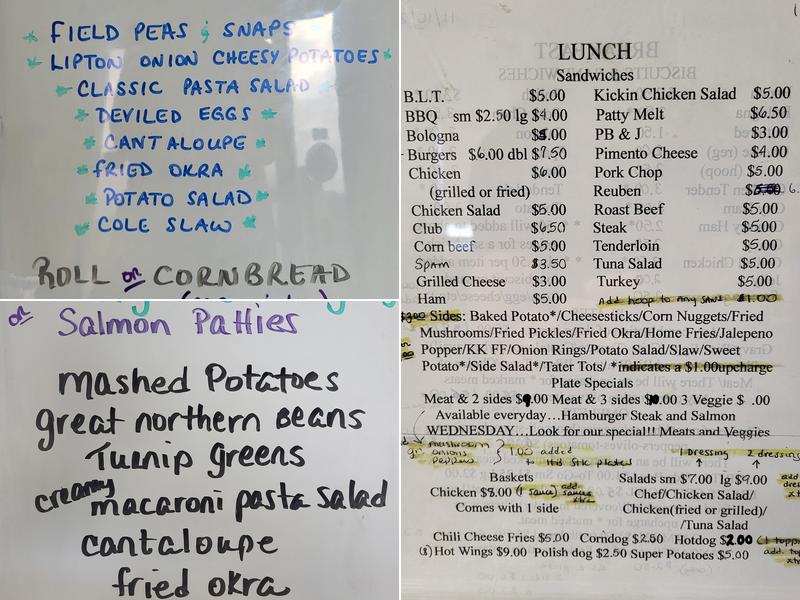 FIELD PEAS & SNAPS
LIPTON ONION CHEESY POTATOES
CLASSIC PASTA SALAD
DEVILED EGGS
CANTALOUPE
FRIED OKRA
POTATO SALAD
COLE SLAW
ROLL or CORNBREAD
or Salmon Patties
mashed Potatoes
great northern Beans
Turnip greens
creamy macaroni pasta salad
cantaloupe
fried okra
LUNCH
Sandwiches
B.L.T. $5.00 Kickin Chicken Salad $5.00
BBQ sm $2.50 lg $4.00 Patty Melt $6.50
Bologna $5.00 PB & J $3.00
Burgers $6.00 dbl $7.50 Pimento Cheese $4.00
Chicken $6.00 Pork Chop $5.00
(grilled or fried) Reuben 6.
Chicken Salad $5.00 Roast Beef $5.00
Club $6.50 Steak $5.00
Corn beef $5.00 Tenderloin $5.00
Spam $3.50 Tuna Salad $5.00
Grilled Cheese $3.00 Turkey $5.00
Ham $5.00 Add hoop to any $1.00
$3.00 Sides: Baked Potato*/Cheesesticks/Corn Nuggets/Fried
Mushrooms/Fried Pickles/Fried Okra/Home Fries/Jalepeno
Popper/KK FF/Onion Rings/Potato Salad/Slaw/Sweet
Potato*/Side Salad*/Tater Tots/ *indicates a $1.00upcharge
Plate Specials
Meat & 2 sides Meat & 3 sides 3 Veggie $ .00
Available everyday…Hamburger Steak and Salmon
WEDNESDAY…Look for our special!!! Meats and Veggies
mushroom
onions
peppers
1.00 added
to Hd Stk plates
1 Dressing 2 dressing
Baskets Salads sm $7.00 lg $9.00
Chicken $8.00 (1 sauce) add sauces xtra Chef/Chicken Salad/
Comes with 1 side Chicken(fried or grilled)/
/Tuna Salad
Chili Cheese Fries $5.00 Corndog $2.50 Hotdog $2.00
(8) Hot Wings $9.00 Polish dog $2.50 Super Potatoes $5.00